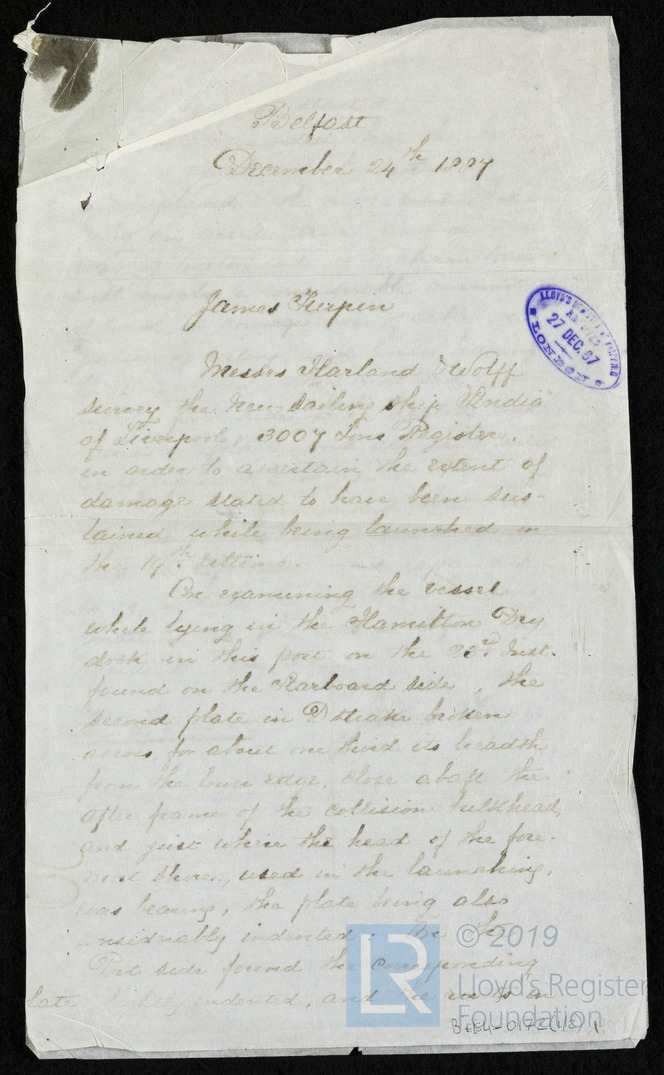 Belfast
December 24th 1887
James Turpin
Messrs Harland & Wolff
survey the New Sailing ship "India"
of Liverpool, 3007 Tons Register.
in order to ascertain the extent of
damage stated to have been sus-
tained while being launched on
the 19th
On examining the vessel
while lying in the Hamilton Dry
dock in this port on the Inst.
found on the Starboard side, the
second plate in D strake broken
across for about one third its breadth
from the lower edge, close abaft the
after frame of the collision bulkhead,
and just where the head of the fore-
shore, used in the launching,
was bearing, the plate being also
nsiderably indented. On the
Port side found the corresponding
late indented, and the
LLOYD'S REGISTER OF SHIPPING
27 DEC. 87
LONDON
LR
© 2019
Lloyd's Register
Foundation